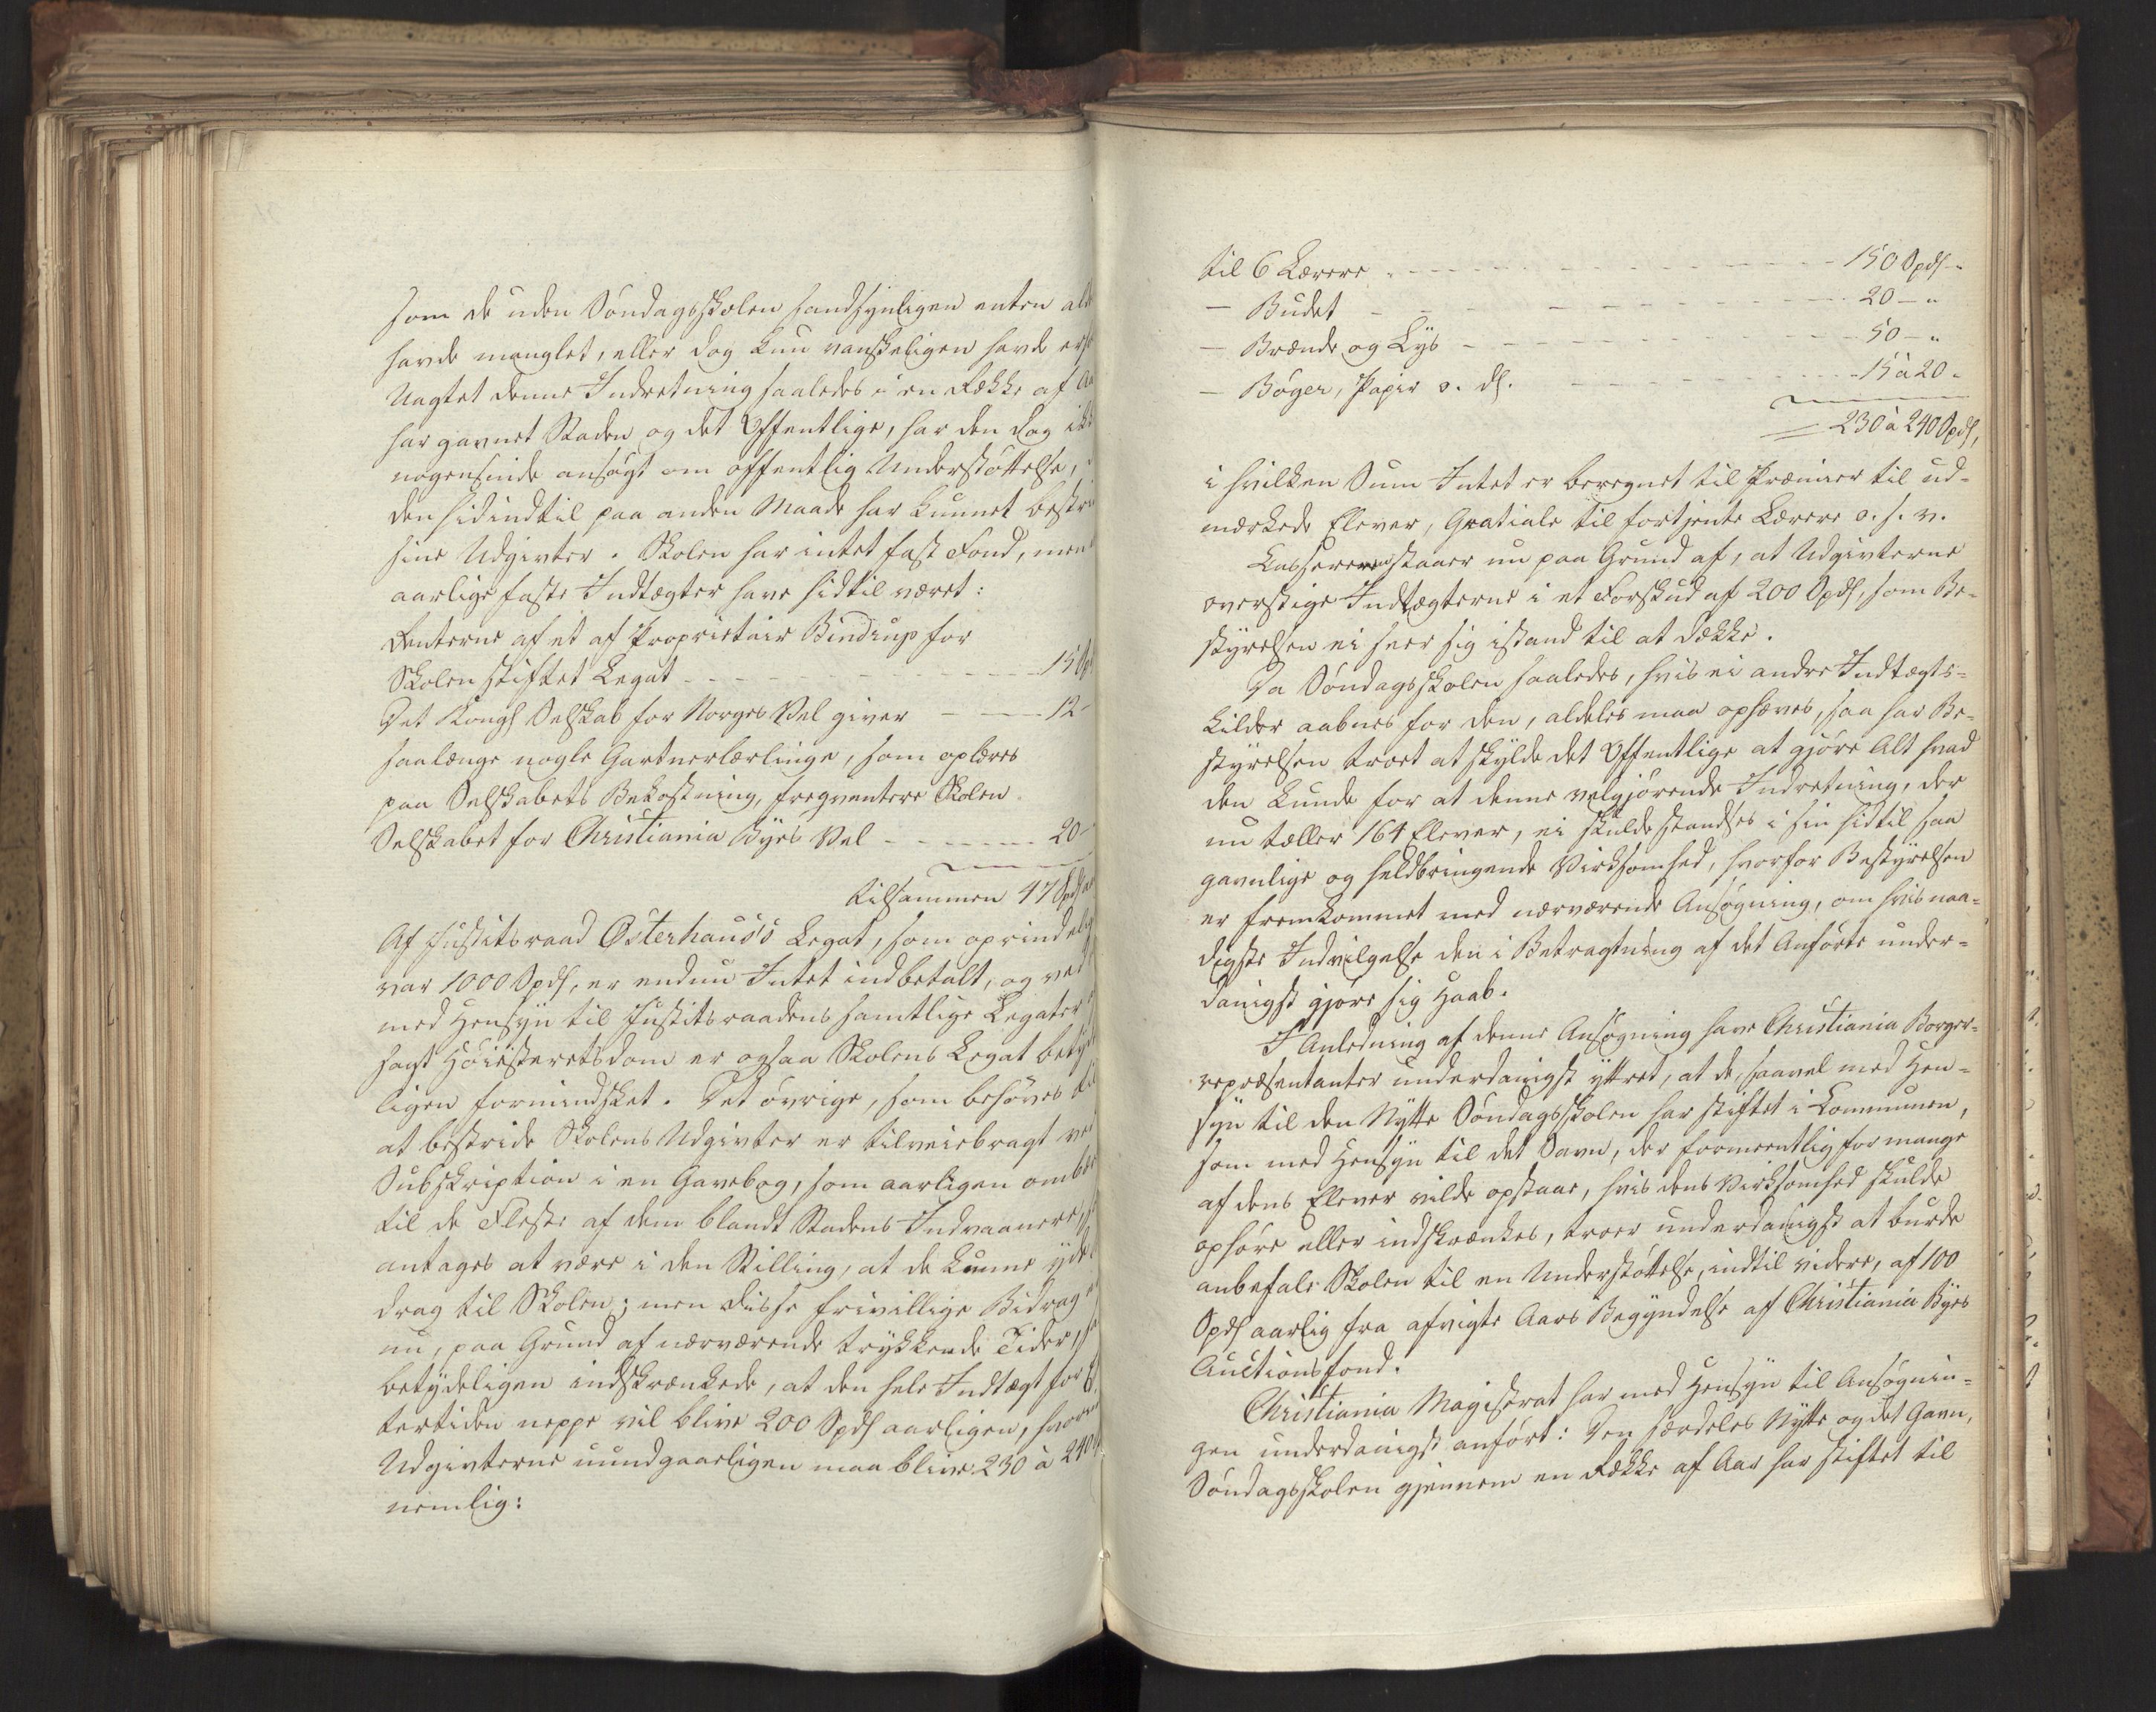 som de uden Søndagsskolen sandsynligen enten
havde manglet, eller dog kun vanskeligen havde
Uagtet denne Indretning saaledes i en Række af
har gavnet Staden og det Offentlige, har den dog
nogensinde ansøgt om offentlig Understøttelse,
den hidindtil paa anden Maade har kunnet
sine Udgivter. Skolen har intet fast Fond, men
aarlige faste Indtægter have hidtil været:
Renterne af et af Proprietair Bindrup for
Skolen stiftet Legat - - - - - - - - - 15
Det Kongl Selskab for Norges Vel giver - - 12 -
saalænge nogle Gartnerlærlinge, som oplæres
paa Selskabets Bekostning, freqventere Skolen.
Selskabet for Christiania Byes Vel - - - - - - 20 -
tilsammen 47 Spdl
Af Justitsraad Osterhaus's Legat, som
var 1000 Spdl, er endnu Intet indbetalt, og ved
med Hensyn til Justitsraadens samtlige Legater
sagt Høiesteretsdom er ogsaa Skolens Legat
ligen formindsket. Det øvrige, som behøves til
at bestride Skolens Udgivter er tilveiebragt ved
Subskription i en Gavebog, som aarligen
til de Fleste af dem blandt Stadens Indvaanere,
antages at være i den Stilling, at de kunne
drag til Skolen; men disse frivillige Bidrag
nu, paa Grund af nærværende trykkende Tider,
betydeligen indskrænkede, at den hele Indtægt for
tertiden neppe vil blive 200 Spdl aarligen,
Udgivterne uundgaaeligen maa blive 230 à 240
nemlig:
til 6 Lærere - - - - - - - - - - 150 Spdl - "
- Budet - - - - - - - - - - 20 - "
- Brænde og Lys - - - - - - - - - - 50 - "
- Bøger, Papir o. dl. - - - - - - - - 15 à 20 -
= 230 à 240 Spdl,
i hvilken Sum Intet er beregnet til Præmier til ud-
mærkede Elever, Gratiale til fortjente Lærere o. s. v.
Kassereren staaer nu paa Grund af, at Udgivterne
overstige Indtægterne i et Forskud af 200 Spdl, som Be-
styrelsen ei seer sig istand til at dække.
Da Søndagsskolen saaledes, hvis ei andre Indtægts-
kilder aabnes for den, aldeles maa ophæves, saa har Be-
styrelsen troet at skylde det Offentlige at gjøre Alt hvad
den kunde for at denne velgjørende Indretning, der
nu tæller 164 Elever, ei skulde standses i sin hidtil saa
gavnlige og heldbringende Virksomhed, hvorfor Bestyrelsen
er fremkommet med nærværende Ansøgning, om hvis naa-
digste Indvilgelse den i Betragtning af det Anførte under-
danigst gjøre sig Haab.
I Anledning af denne Ansøgning have Christiania Borger-
repræsentanter underdanigst yttret, at de, saavel med Hen-
syn til den Nytte Søndagsskolen har stiftet i Communen,
som med Hensyn til det Savn, der formeentlig for mange
af dens Elever vilde opstaae, hvis dens Virksomhed skulde
ophøre eller indskrænkes, troer underdanigst at burde
anbefale Skolen til en Understøttelse, indtil videre, af 100
Spdl aarlig fra afvigte Aars Begyndelse af Christiania Byes
Auctionsfond.
Christiania Magistrat har med Hensyn til Ansøgnin-
gen underdanigst anført: Den særdeles Nytte og det Gavn,
Søndagsskolen gjennem en Række af Aar har stiftet til